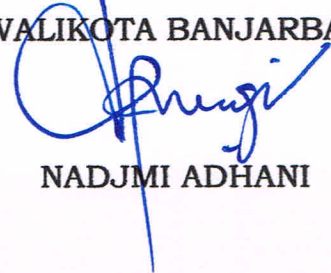 WALIKOTA BANJARBA
NADJMI ADHANI